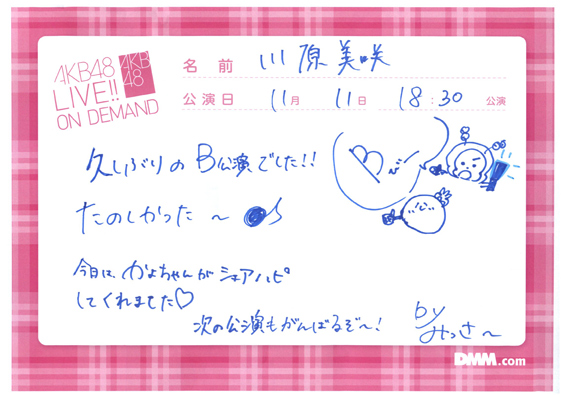 AKB48
LIVE!!
ON DEMAND
AKB
48
名前 川原美咲
公演日 11月 11日 18:30 公演
久しぶりのB公演でした!!
たのしかった〜
B
今日はかよちゃんがシェアハピ
してくれました♡
次の公演もがんばるぞ〜!
by
みっさ〜
DMM.com